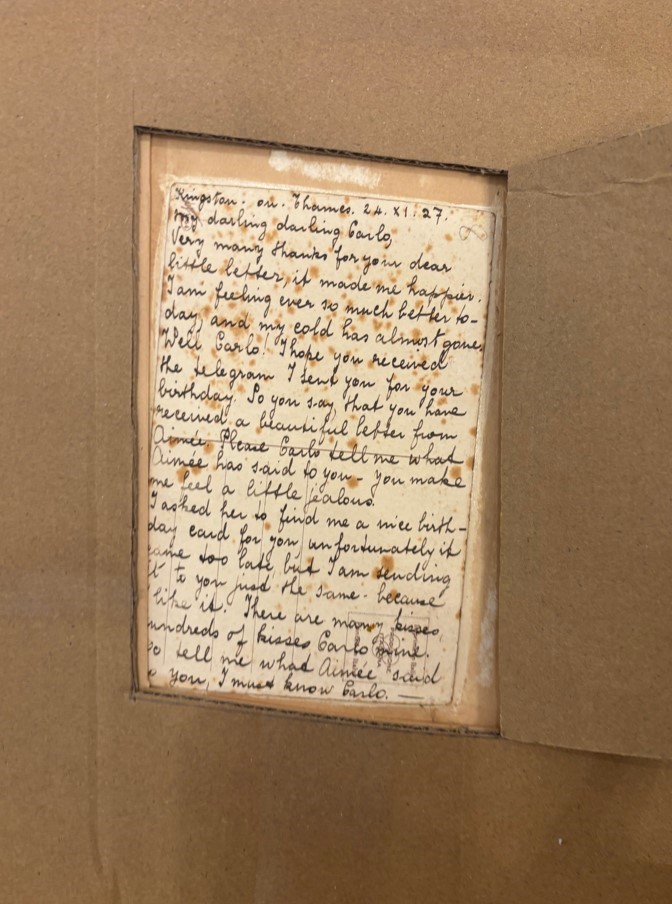 Kingston. on. Thames. 24. XI. 27.
My darling darling Carlo,
Very many thanks for your dear
little letter, it made me happier.
I am feeling ever so much better to-
day, and my cold has almost gone.
Well Carlo! I hope you received
the telegram I sent you for your
birthday. So you say, that you have
received a beautiful letter from
Aimée. Please Carlo tell me what
Aimée has said to you - you make
me feel a little jealous.
I asked her to find me a nice birth-
day card for you unfortunately it
came too late, but I am sending
it to you just the same because
like it. There are many kisses,
undreds of kisses Carlo mine.
so tell me what Aimée said
you, I must know Carlo. —